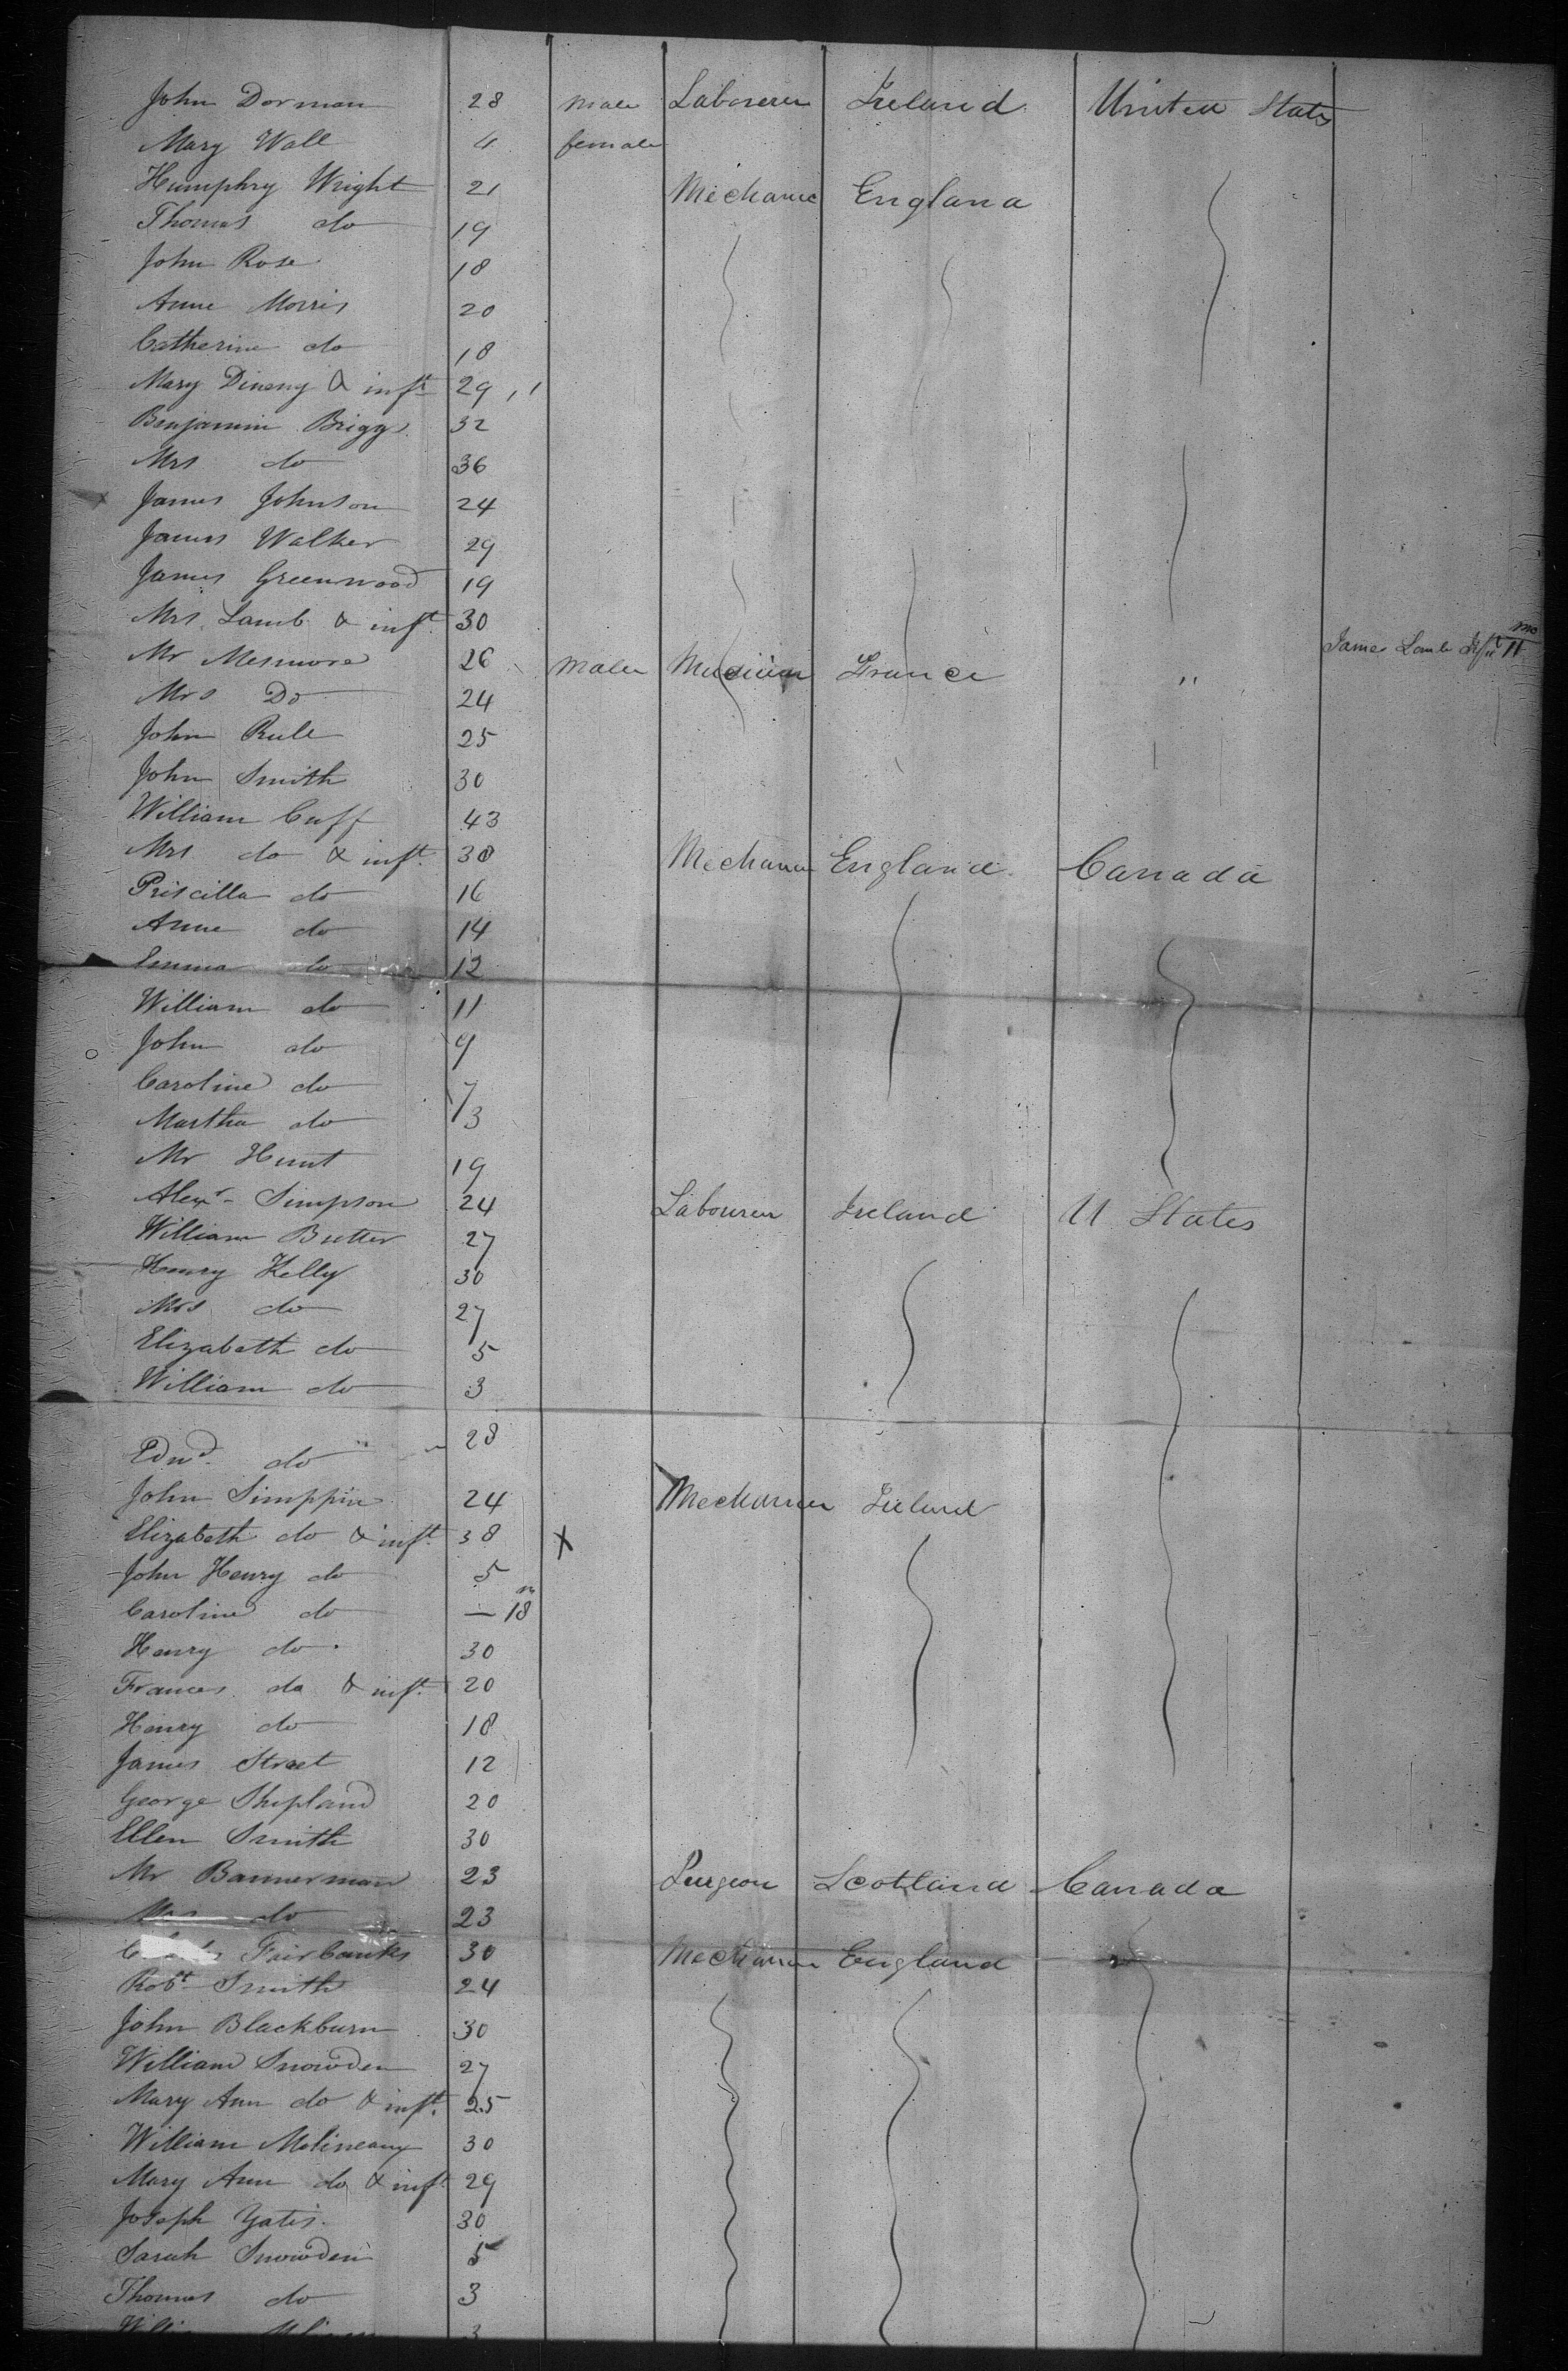 John Dorman 28 male Labourer Ireland United States
Mary Wall 4 female
Humphry Wright 21 Mechanic England
Thomas do 19
John Rose 18
Anne Morris 20
Catherine do 18
Mary Dineny & inft 29
Benjamin Briggs 32
Mrs do 36
James Johnson 24
James Walker 29
James Greenwood 19
Mrs Lamb & inft 30
James Lamb mo 11
Mr Mesmore 26 male France "
Mrs Do 24
John Rule 25
John Smith 30
William Cuff 43
Mrs do & inft 38 Mechanic England Canada
Priscilla do 16
Anne do 14
Emma do 12
William do 11
John do 9
Caroline do 7
Martha do 3
Mr Hunt 19
Alexr Simpson 24 Labourer Ireland U States
William Butter 27
Henry Kelly 30
Mrs do 27
Elizabeth do 5
William do 3
Edwd do 28
John Simppin 24 Mechanic Ireland
Elizabeth do & inft 38 X
John Henry do 5
Caroline do — 18 m
Henry do 30
Frances do & inft 20
Henry do 18
James Street 12
George Shipland 20
Ellen Smith 30
Mr Bannerman 23 Surgeon Scotland Canada
Mrs do 23
Fairbanks 30 Mechanic England
Robt Smith 24
John Blackburn 30
William Snowden 27
Mary Ann do & inft 25
William Molineaux 30
Mary Ann do & inft 29
Joseph Yates 30
Sarah Snowden 5
Thomas do 3
3